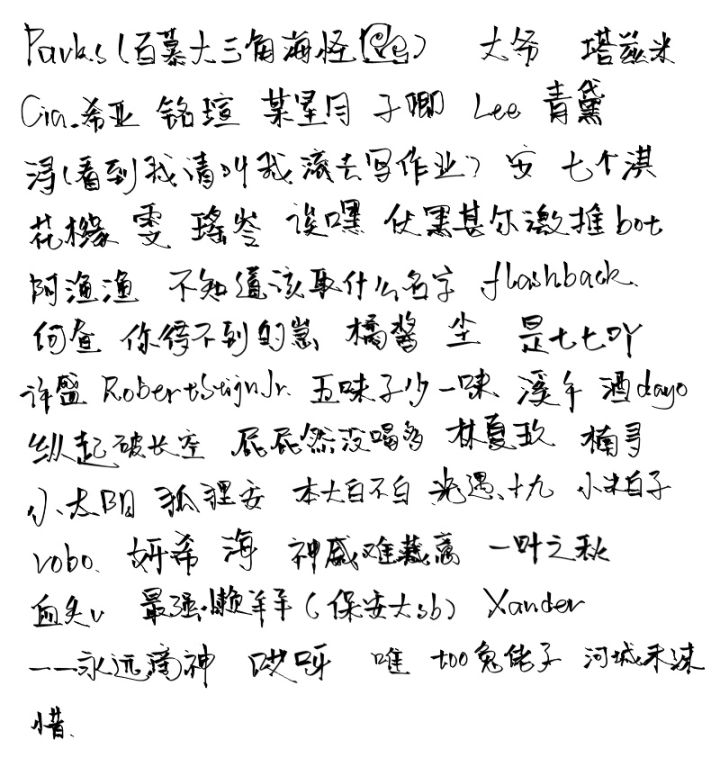 Parks(百慕大三角海怪) 大爷 塔兹米
Cia.希亚 铭瑄 某星月 子卿 Lee 青黛
浔(看到我请叫我滚去写作业) 安 七个淇
花橼 雯 瑤岺 诶嘿 伏黑甚尔激推bot
阿渔渔 不知道该取什么名字 flashback.
何鱼 你得不到的崽 橘酱 尘 是七七吖
许盛 RobertsSeignJr. 五味子少一味 溪午 酒dayo
纵起破长空 屁屁然没喝多 林夏玖 楠寻
小太阳 狐狸安 本大白不白 光遇、十九 小米白子
vobo. 妍希 海 神威难藏离 一叶之秋
血矢v 最强懒羊羊(保安大sb) Xander
——永远离神 哎呀 唯 too兔佬子 河城禾涑
惜.